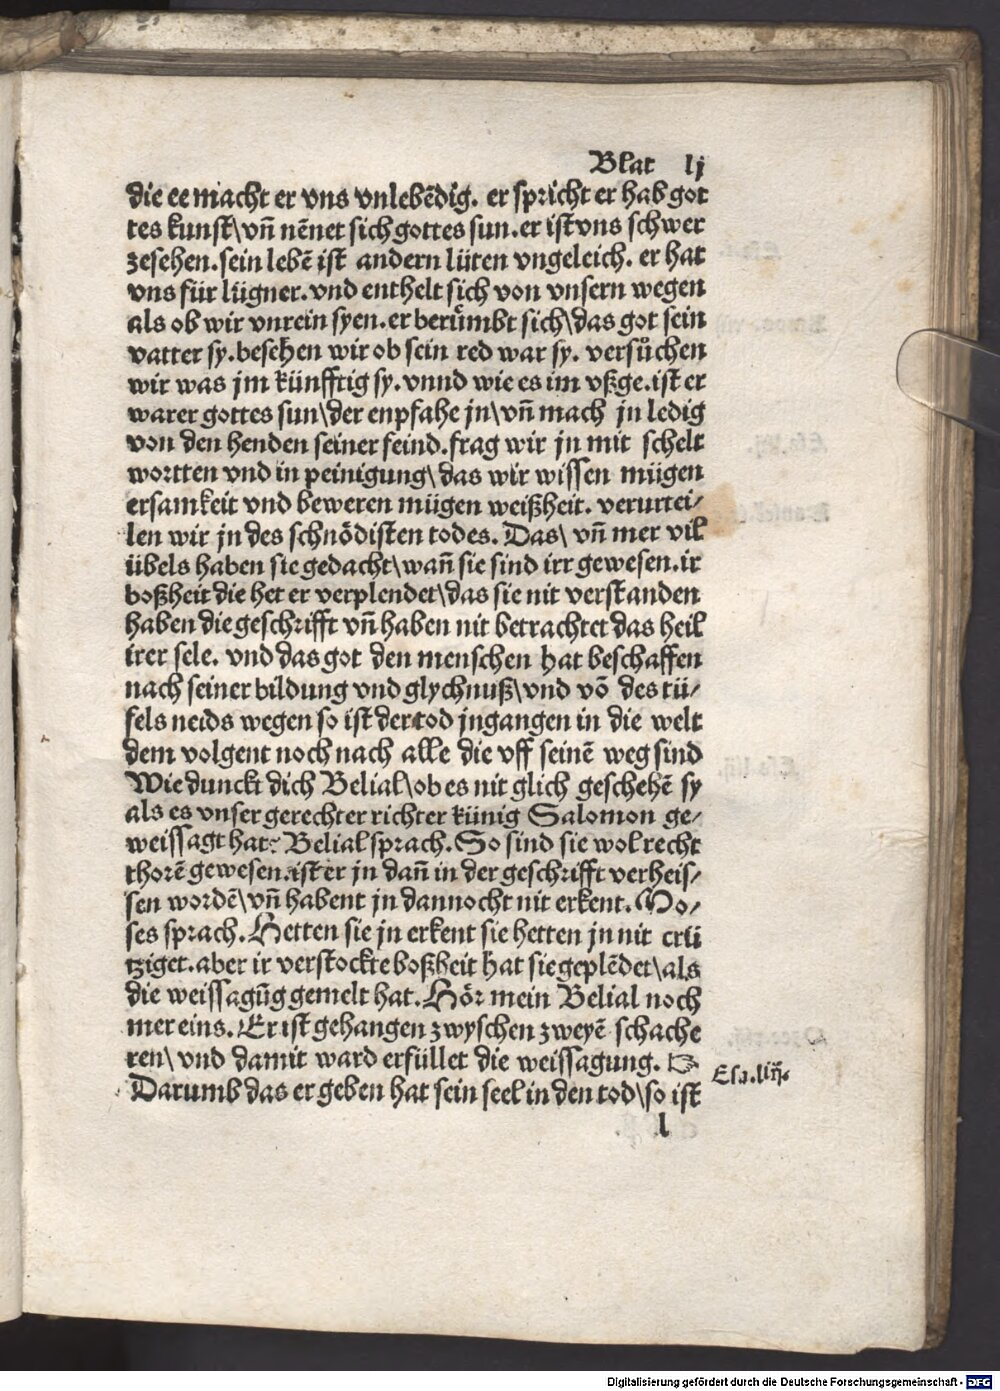 Blat lj
die ee macht er vns vnlebẽdig. er spricht er hab got
tes kunst\vñ nẽnet sich gottes sun. er ist vns schwer
zesehen. sein lebẽ ist andern lüten vngeleich. er hat
vns für lügner. vnd enthelt sich von vnsern wegen
als ob wir vnrein syen. er berümbt sich\das got sein
vatter sy. besehen wir ob sein red war sy. versůchen
wir was jm künfftig sy. vnnd wie es im vßge. ist er
warer gottes sun\der enpfahe jn\vñ mach jn ledig
von den henden seiner feind. frag wir jn mit schelt
wortten vnd in peinigung\das wir wissen mügen
ersamkeit vnd beweren mügen weißheit. verurtei⸗
len wir jn des schnödisten todes. Das\ vñ mer vil
übels haben sie gedacht\wañ sie sind irr gewesen. ir
boßheit die het er verplendet\das sie nit verstanden
haben die geschrifft vñ haben nit betrachtet das heil
irer sele. vnd das got den menschen hat beschaffen
nach seiner bildung vnd glychnuß\vnd võ des tü⸗
fels neids wegen so ist der tod jngangen in die welt
dem volgent noch nach alle die vff seinẽ weg sind
Wie dunckt dich Belial\ob es nit glich geschehẽ sy
als es vnser gerechter richter künig Salomon ge⸗
weissagt hat? Belial sprach. So sind sie wol recht
thorẽ gewesen. ist er jn dañ in der geschrifft verheis⸗
sen wordẽ\vñ habent jn dannocht nit erkent. Mo⸗
ses sprach. Hetten sie jn erkent sie hetten jn nit crü
tziget. aber ir verstockte boßheit hat sie geplẽdet\als
die weissagũg gemelt hat. Hör mein Belial noch
mer eins. Er ist gehangen zwyschen zweyẽ schache
ren\ vnd damit ward erfüllet die weissagung. ☞
Esa. liij.
Darumb das er geben hat sein seel in den tod\so ist
l
Digitalisierung gefördert durch die Deutsche Forschungsgemeinschaft - DFG